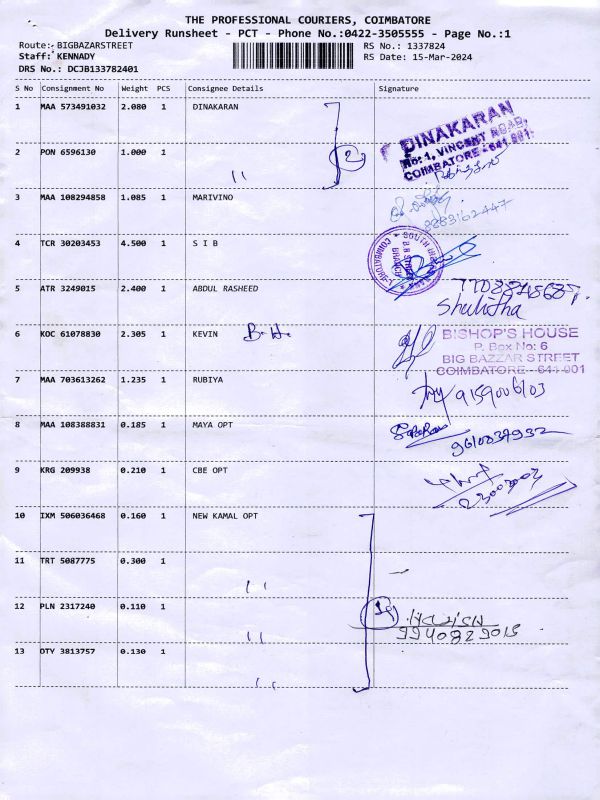 THE PROFESSIONAL COURIERS, COIMBATORE
Delivery Runsheet - PCT - Phone No.:0422-3505555 - Page No.:1
Route: BIGBAZARSTREET RS No.: 1337824
Staff: KENNADY RS Date: 15-Mar-2024
DRS No.: DCJB133782401
S No Consignment No Weight PCS Consignee Details Signature
1 MAA 573491032 2.080 1 DINAKARAN
DINAKARAN
No: 1, VINCENT ROAD,
COIMBATORE - 641 001.
2 PON 6596130 1.000 1 " 2
3 MAA 108294858 1.085 1 MARIVINO
8883162447
4 TCR 30203453 4.500 1 S I B
5 ATR 3249015 2.400 1 ABDUL RASHEED
7708848687.
6 KOC 61078830 2.305 1 KEVIN B.H.
BISHOP'S HOUSE
P. Box No: 6
BIG BAZZAR STREET
COIMBATORE - 641 001
7 MAA 703613262 1.235 1 RUBIYA
9159006103
8 MAA 108388831 0.185 1 MAYA OPT
9 KRG 209938 0.210 1 CBE OPT
10 IXM 506036468 0.160 1 NEW KAMAL OPT
11 TRT 5087775 0.300 1 "
12 PLN 2317240 0.110 1 "
9940829015
13 OTY 3813757 0.130 1 "